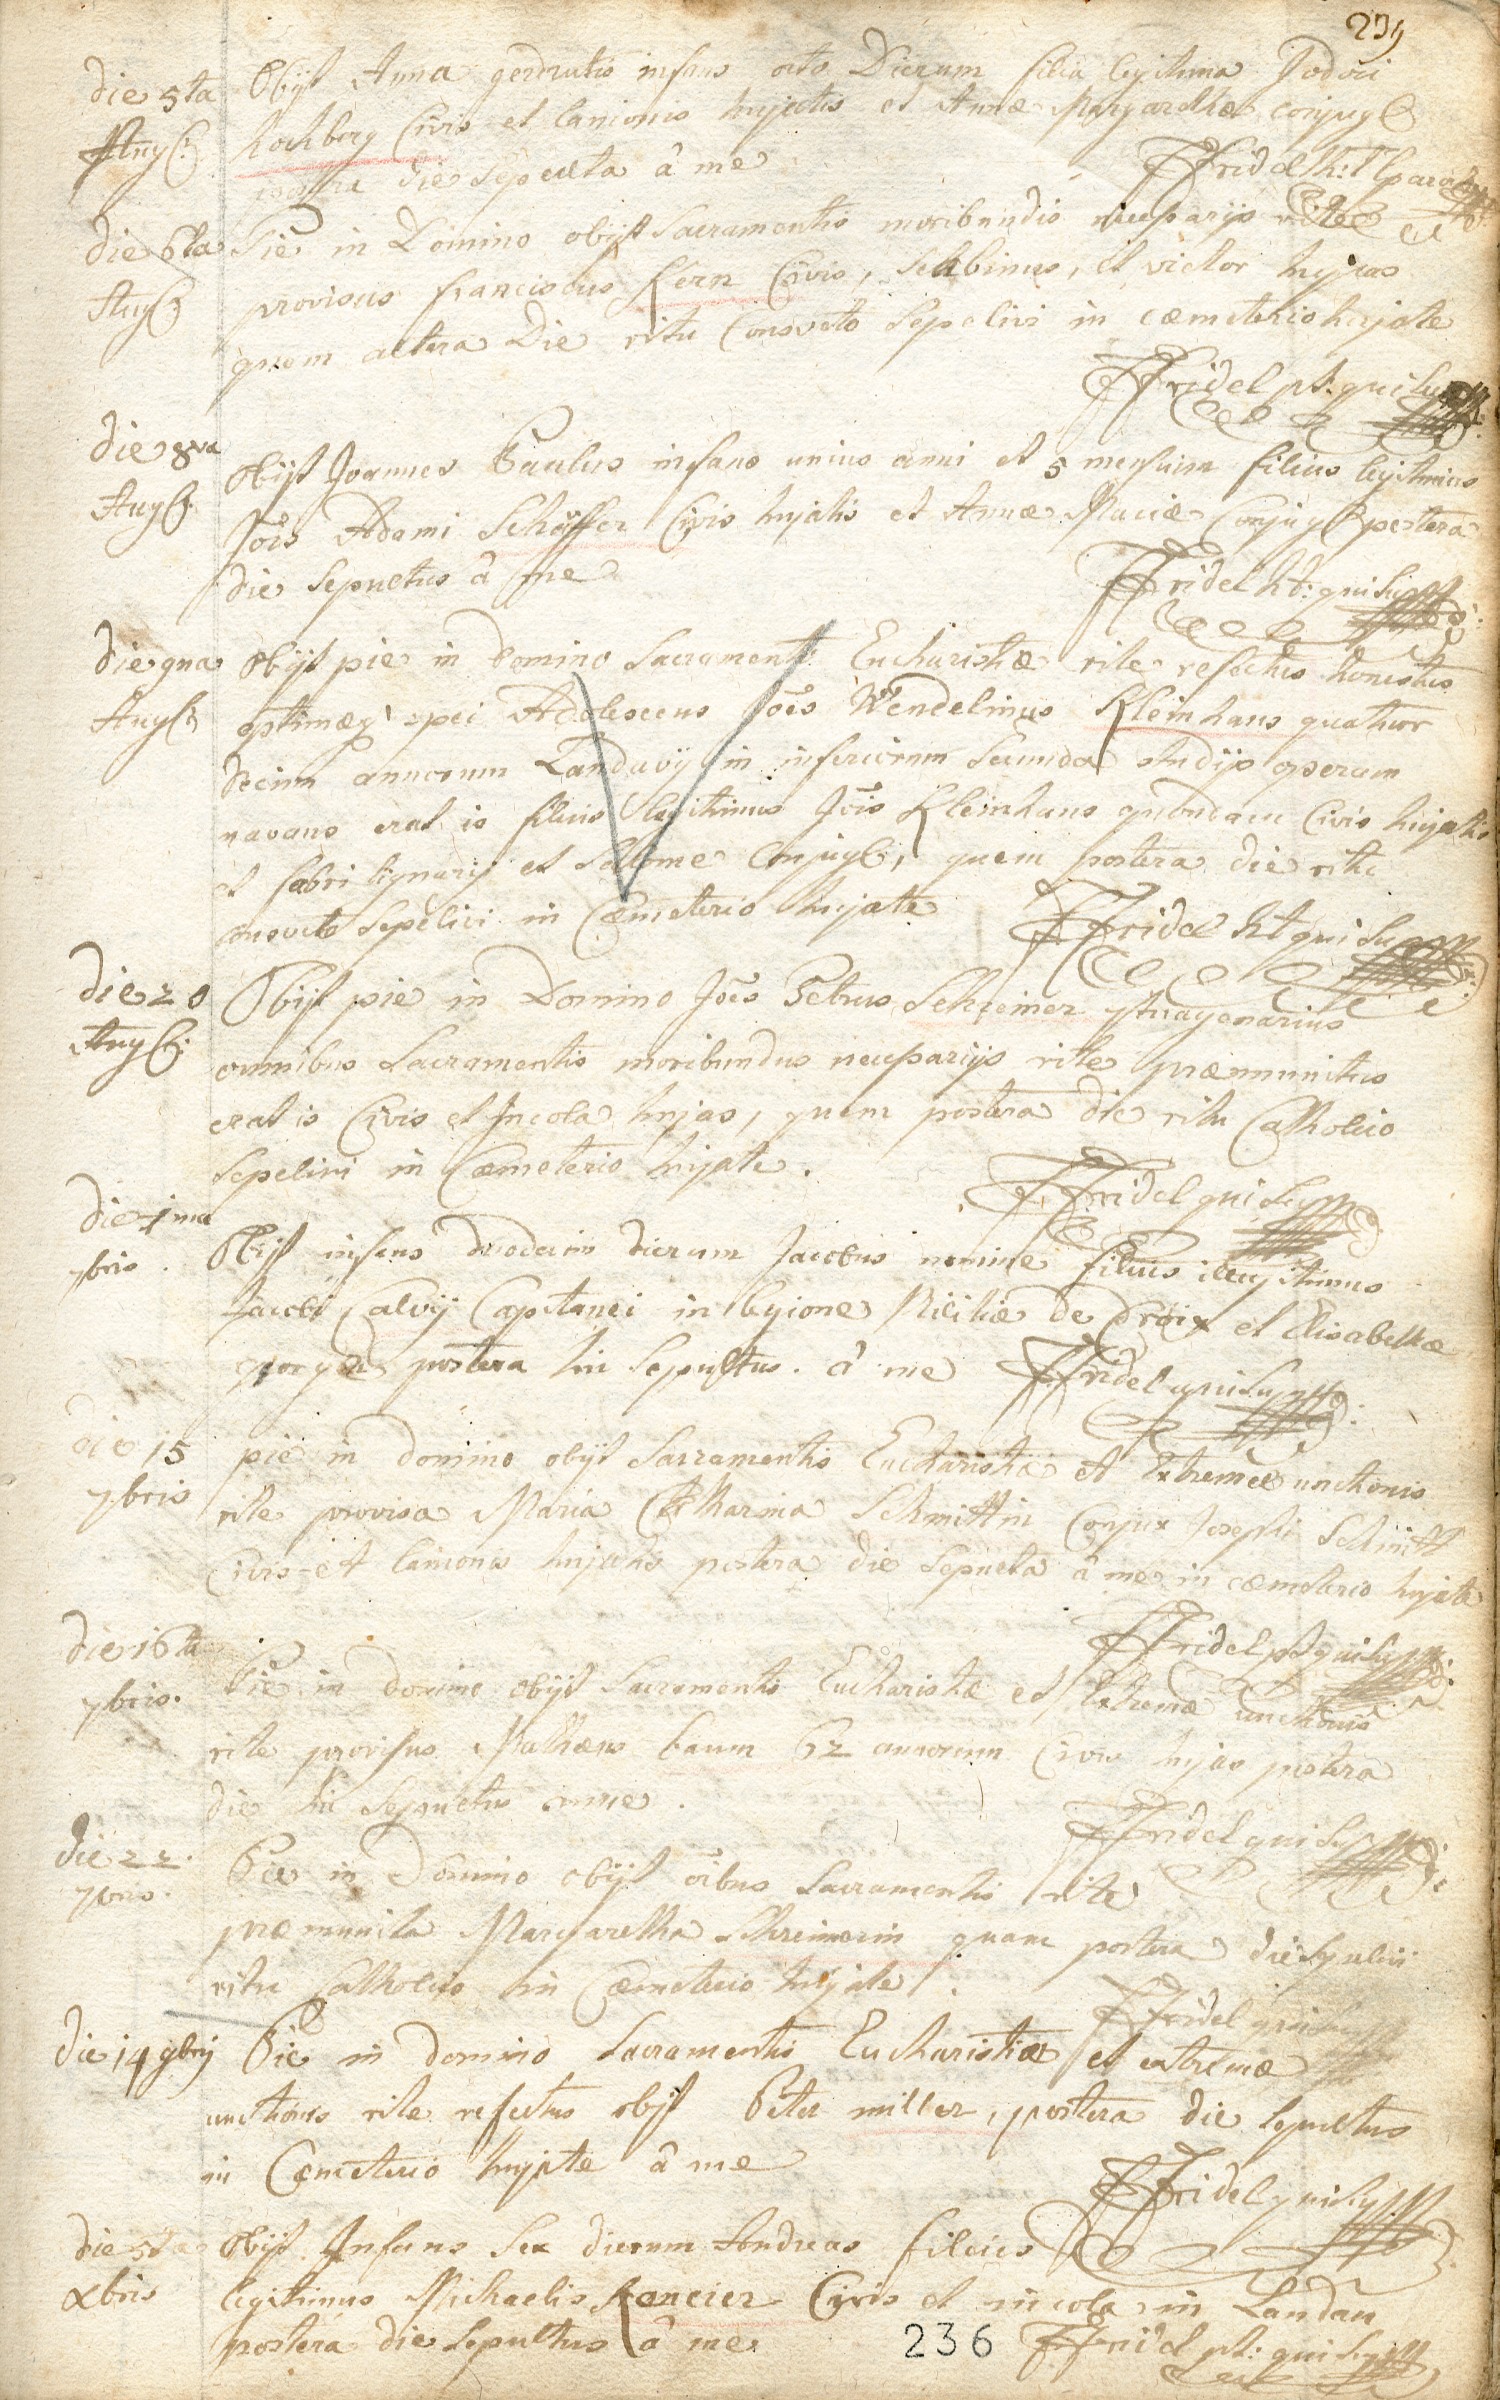 239
die 5ta Obijt Anna gerdrutis infans octo Dierum filia legitima Jodoci
Aug Hochberg Civis et lanionis hujatis et Annæ Margarethæ conjug
postera die sepulta â me FFridel
die 6ta Pie in Domino obijt Sacramentis moribundis necessarijs rite
Aug provisus franciscus Kern Civis, Schbinus, et victor hujas
quem altera Die ritu Consveto Sepelivi in cæmeterio hujate
FFridel pt: qui supra
die 8va Obijt Joannes Paulus infans unius anni et 5 mensium filius legitimus
Aug Jois Adami Schöffer Civis hujatis et Annæ Mariæ Conjug postera
die sepultus â me FFridel qui supra
die 9na Obijt pie in Domino Sacramento Eucharistiæ rite refectus honestus
Aug optimæq spei Adolescens Joês Wendelinus Kleinhans quatuor
decim annorum Landavij in inferiorum secunda studijs operam
navans erat is filius legitimus Jois Kleinhans quondam Civis hujatis
et fabri lignarij et Salome Conjug, quem postera die ritu
consveto sepelivi in Cæmeterio hujate FFridel qui supra
die 20 Obijt pie in Domino Joês Petrus Schreiner
Aug omnibus Sacramentis moribundus necessarijs rite præmunitus
erat is Civis et Incola hujas, quem postera die ritu Catholico
Sepelivi in Cæmeterio hujate. FFridel qui supra
die 1ma
7bris. Obijt infans duodecim dierum Jacobus nomine filius illegitimus
Jacobi Calvij Capitanei in legione Militiæ De Croix et Elisabethæ
postera hic sepultus. â me FFridel qui supra
die 15 pie in domino obijt Sacramentis Eucharistiæ et Extremæ unctionis
7bris rite provisa Maria Catharina Schmittin Conjux Josephi Schmitt
Civis et lanionis hujatis postera die sepulta â me in cæmeterio hujate
FFridel pt qui supra
die 16ta
7bris. Pie in domino obijt Sacramentis Eucharistiæ et Extremæ unctionis
rite provisus Mathæus baum 62 annorum Civis hujas postera
die hic sepultus â me. FFridel qui supra
die 22. Pie in Domino obijt oîbus Sacramentis rite
7bris. præmunita Margaretha Schreinerin quam postera die sepelivi
ritu Catholico in Cæmeterio hujate. FFridel qui supra
die 14 9bris Pie in domino Sacramentis Eucharistiæ et extremæ
unctionis rite refectus obijt Peter miller, postera die sepultus
in Cæmeterio hujate â me FFridel qui supra
die 5ta Obijt Infans Sex dierum Andreas filius
Xbris legitimus Michaelis Kancier Civis et incola in Landau
postera die sepultus â me. 236 FFridel pt: qui supra